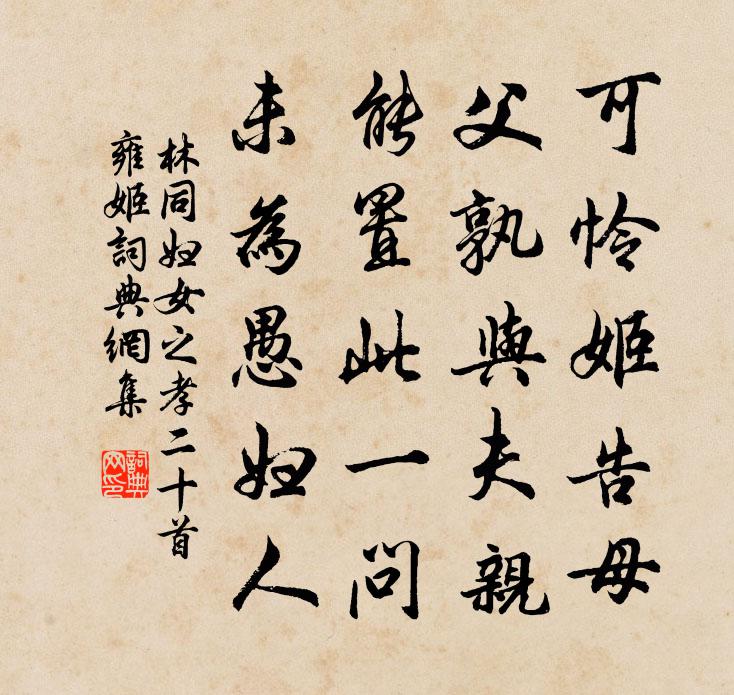 可怜姬告母
父孰與夫親
能置此一問
未為愚妇人
林同妇女之孝二十首
雍姬詞典網集
詞典
网印